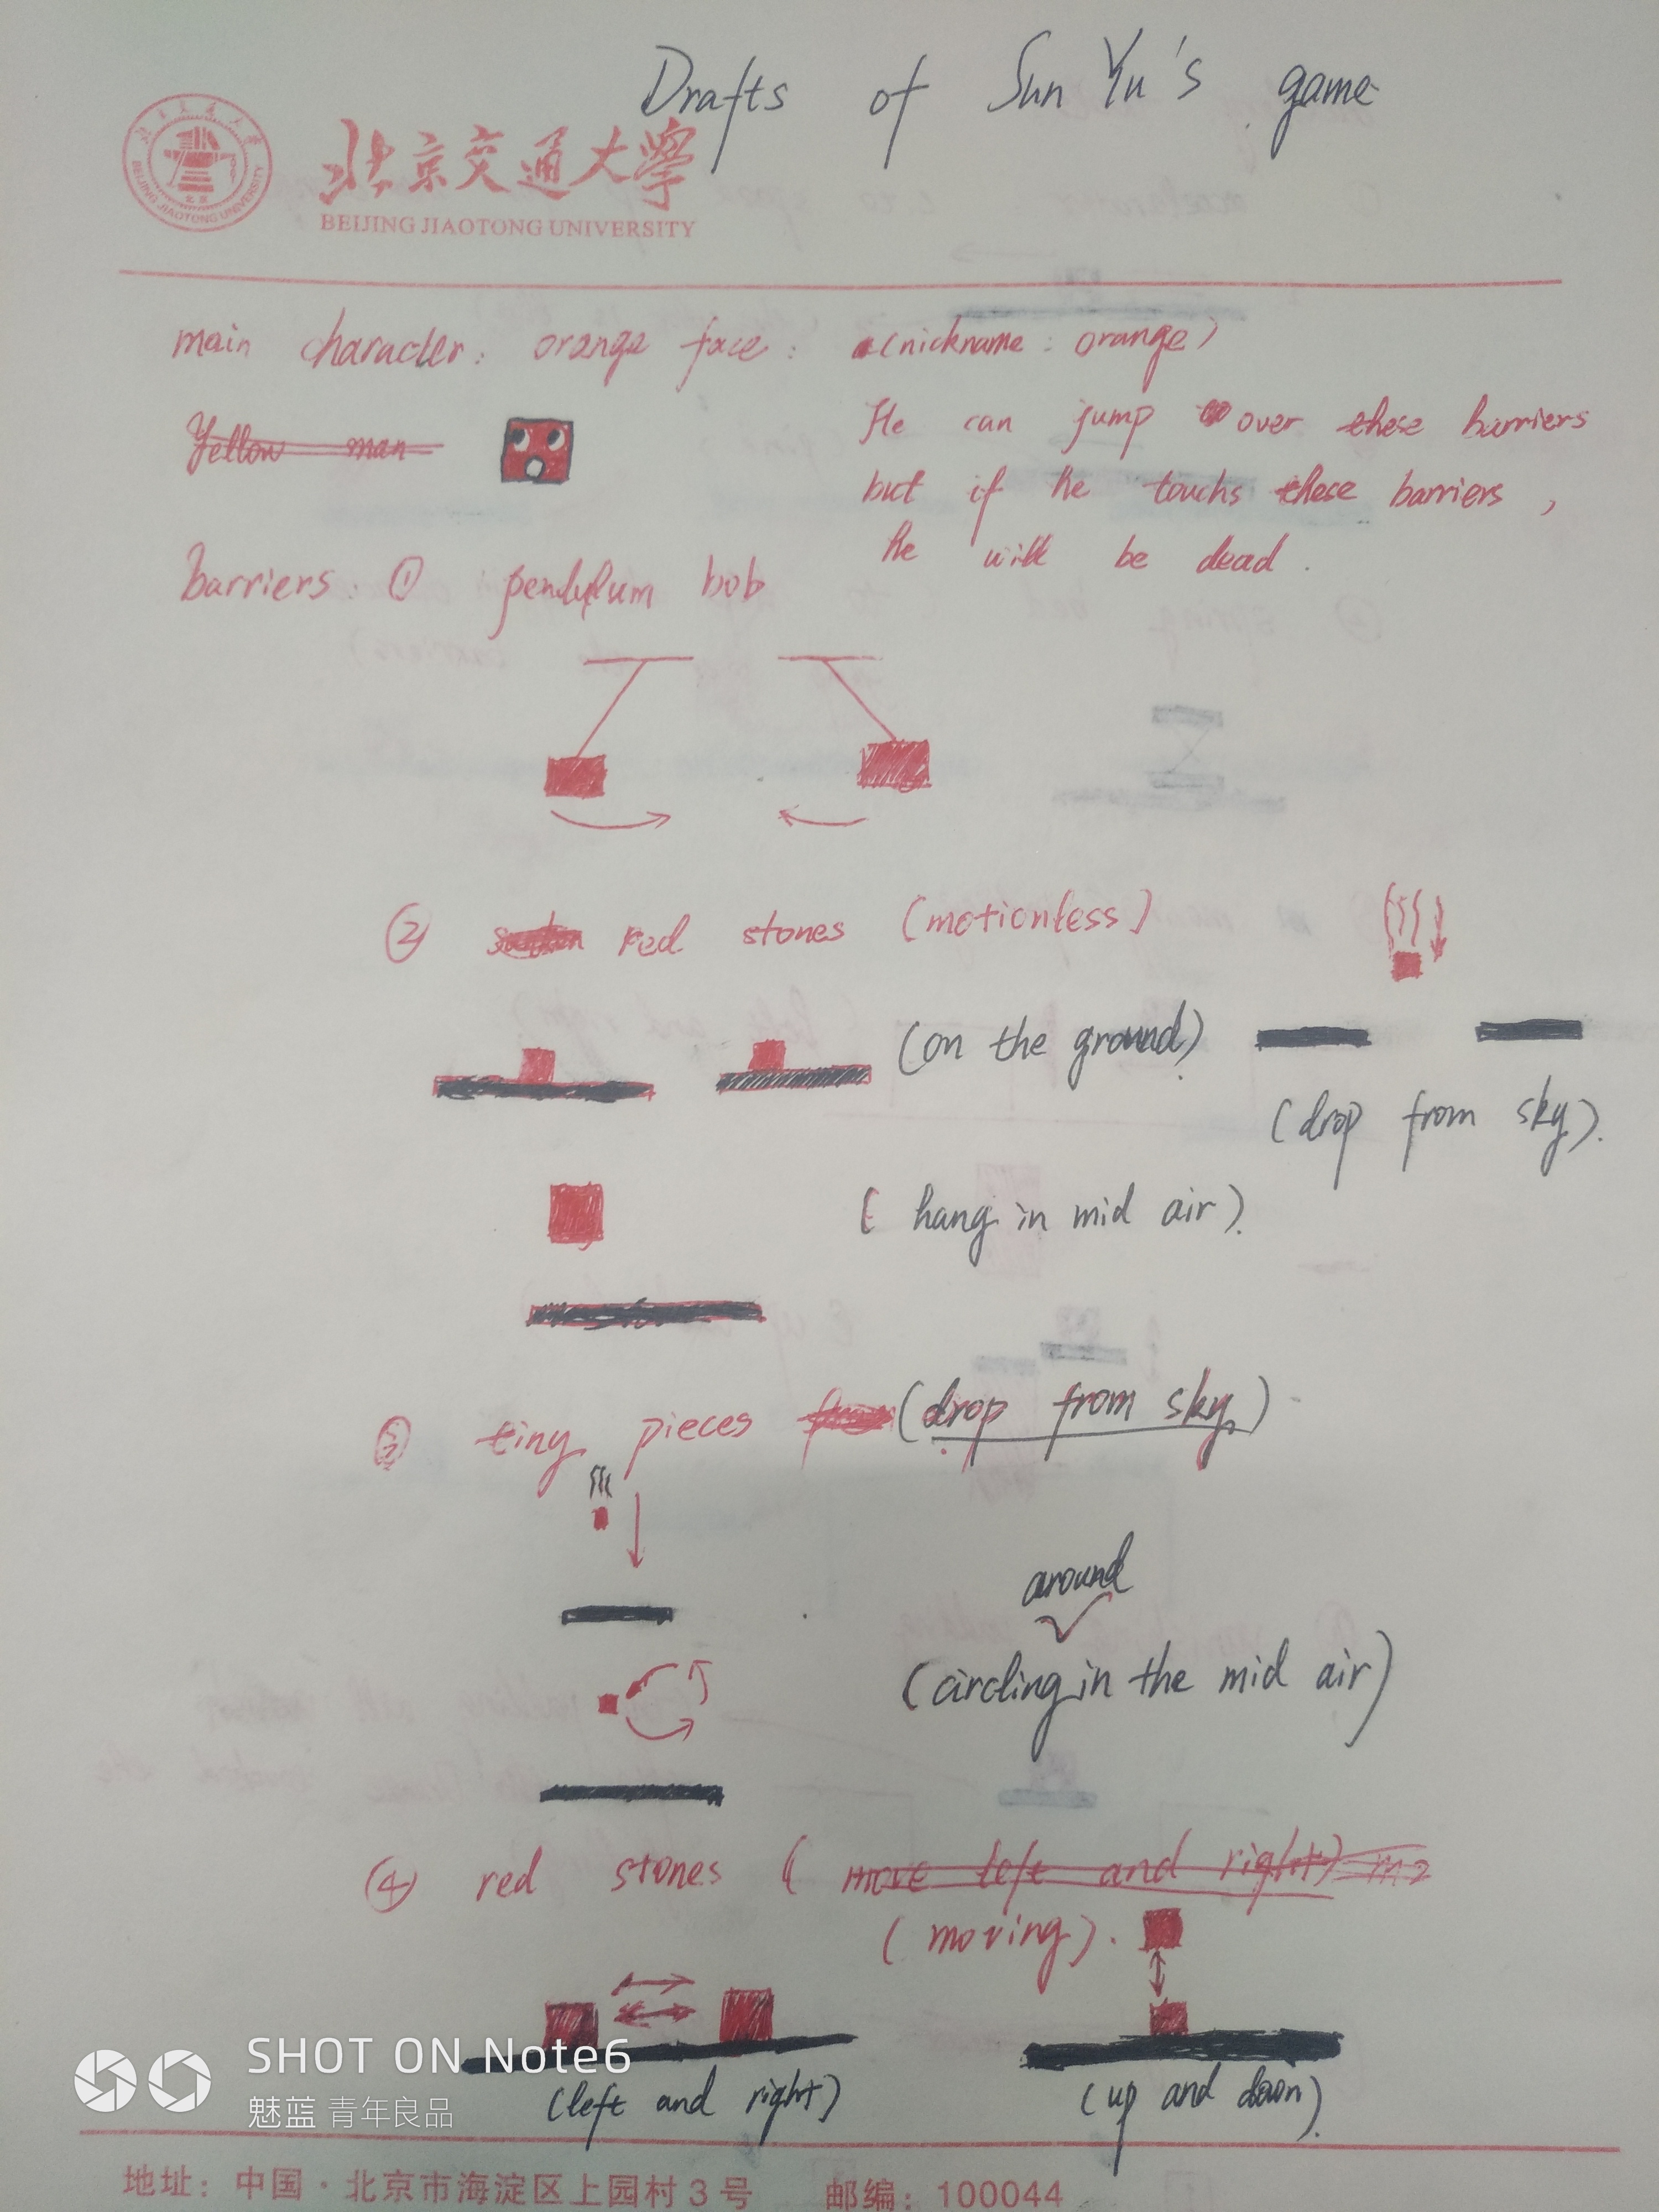 Drafts of Sun Yu's game
北京交通大學
BEIJING JIAOTONG UNIVERSITY
main character: orange face: (nickname: orange)
Yellow man
He can jump over these barriers
but if he touchs these barriers,
he will be dead.
barriers: ① pendulum bob
② red stones (motionless)
(on the ground)
(drop from sky).
(hang in mid air).
③ tiny pieces (drop from sky)
around
(circling in the mid air)
④ red stones (move left and right)
(moving).
(left and right)
(up and down).
SHOT ON Note6
魅蓝 青年良品
地址：中国·北京市海淀区上园村3号 邮编：100044